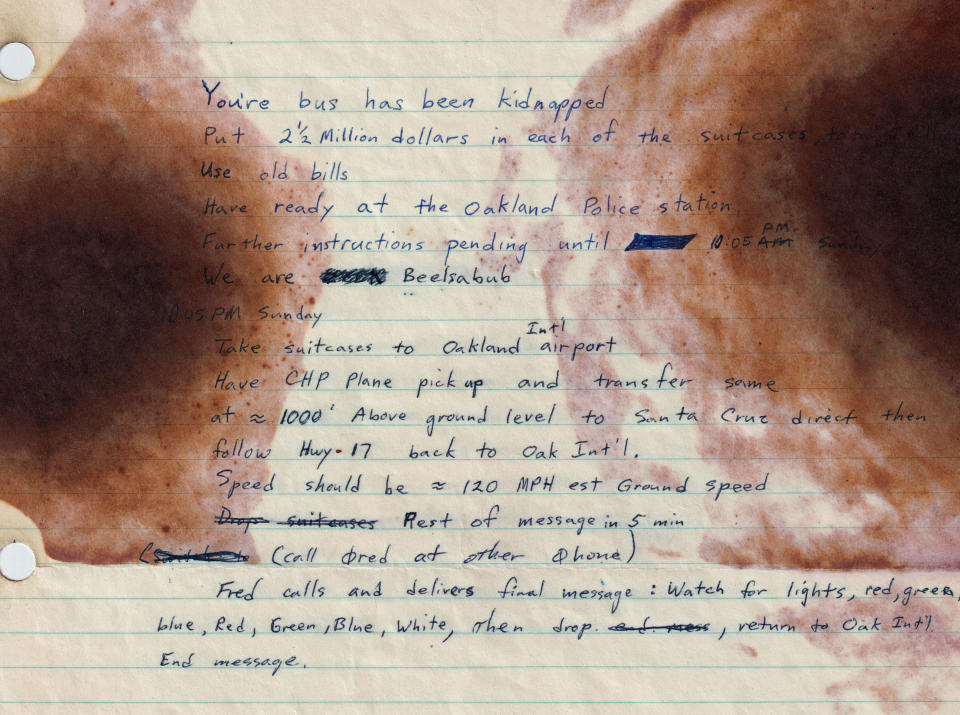 You're bus has been kidnapped
Put 2 1/2 Million dollars in each of the suitcases,
Use old bills
Have ready at the Oakland Police station
Further instructions pending until 10:05 PM. AM Sunday
We are Beelsabub
10:05 PM Sunday
Take suitcases to Oakland Int'l airport
Have CHP Plane pick up and transfer same
at ≈ 1000' Above ground level to Santa Cruz direct then
follow Hwy. 17 back to Oak Int'l.
Speed should be ≈ 120 MPH est Ground speed
Drop suitcases Rest of message in 5 min
(call Fred at other Phone)
Fred calls and delivers final message: Watch for lights, red, green,
blue, Red, Green, Blue, White, then drop. end mess, return to Oak Int'l.
End message.